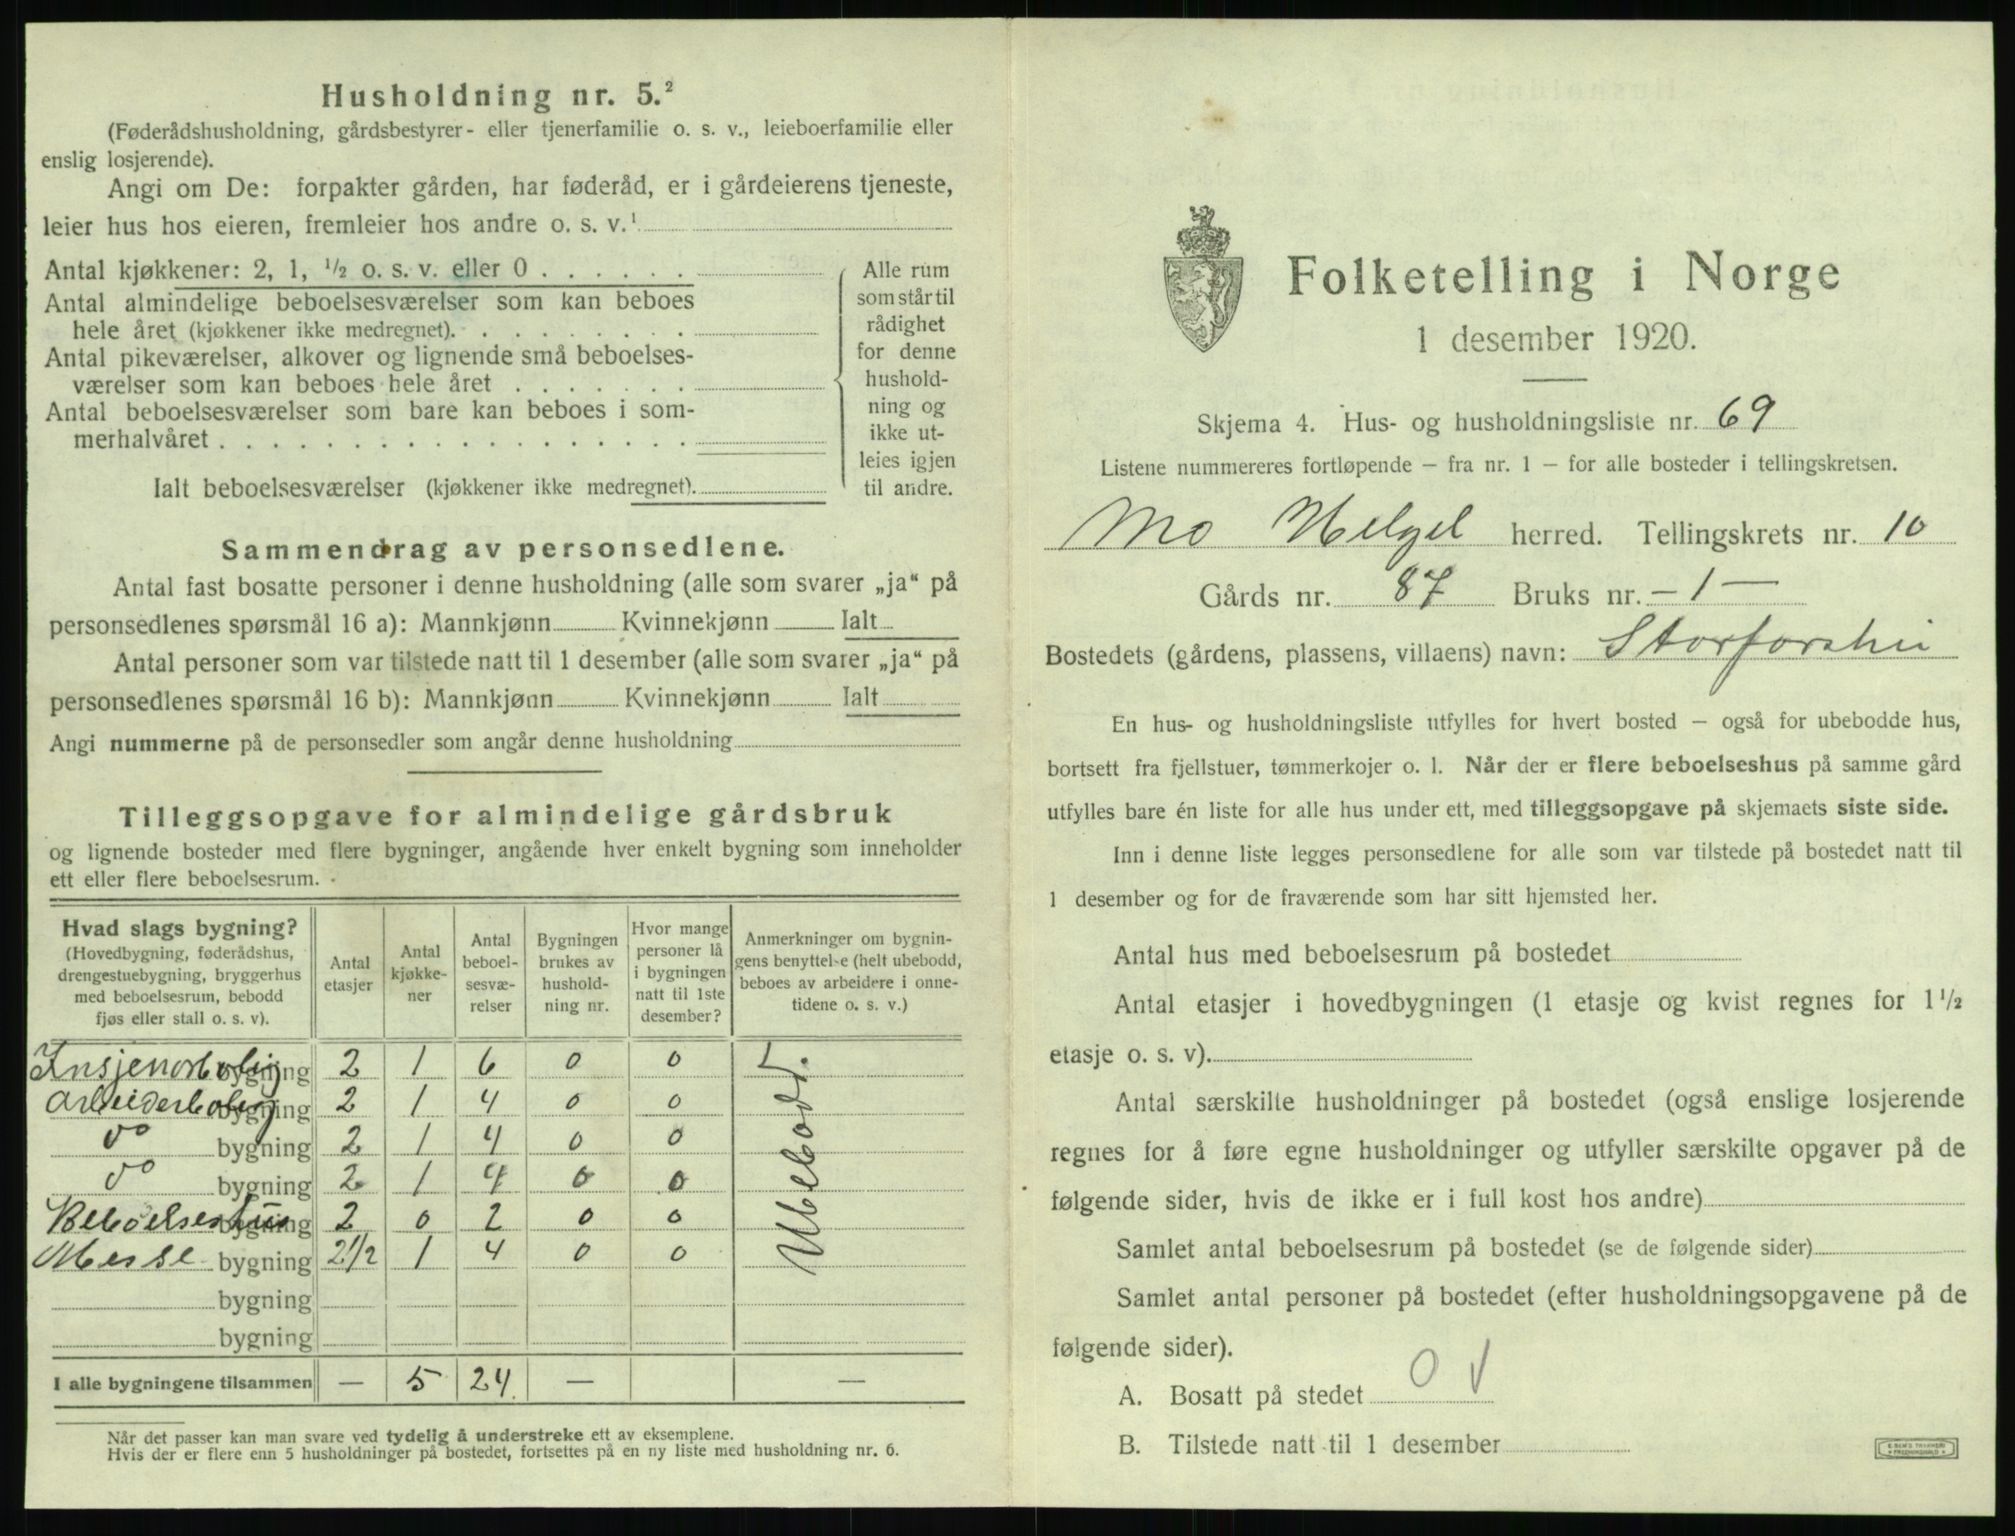 Husholdning nr. 5.²
(Føderådshusholdning, gårdsbestyrer- eller tjenerfamilie o. s. v., leieboerfamilie eller
enslig losjerende).
Angi om De: forpakter gården, har føderåd, er i gårdeierens tjeneste,
leier hus hos eieren, fremleier hos andre o. s. v.¹
Antal kjøkkener: 2, 1, ½ o. s. v. eller 0 . . . . . .
Antal almindelige beboelsesværelser som kan beboes
hele året (kjøkkener ikke medregnet). . . . . . . . .
Antal pikeværelser, alkover og lignende små beboelses-
værelser som kan beboes hele året . . . . . . .
Antal beboelsesværelser som bare kan beboes i som-
merhalvåret . . . . . . . . . . . . . . . . . .
Ialt beboelsesværelser (kjøkkener ikke medregnet).
Alle rum
som står til
rådighet
for denne
hushold-
ning og
ikke ut-
leies igjen
til andre.
Sammendrag av personsedlene.
Antal fast bosatte personer i denne husholdning (alle som svarer „ja“ på
personsedlenes spørsmål 16 a): Mannkjønn Kvinnekjønn Ialt
Antal personer som var tilstede natt til 1 desember (alle som svarer „ja“ på
personsedlenes spørsmål 16 b): Mannkjønn Kvinnekjønn Ialt
Angi nummerne på de personsedler som angår denne husholdning
Tilleggsopgave for almindelige gårdsbruk
og lignende bosteder med flere bygninger, angående hver enkelt bygning som inneholder
ett eller flere beboelsesrum.
Hvad slags bygning?
(Hovedbygning, føderådshus,
drengestuebygning, bryggerhus
med beboelsesrum, bebodd
fjøs eller stall o. s. v).
Antal
etasjer
Antal
kjøkke-
ner
Antal
beboel-
sesvæ-
relser
Bygningen
brukes av
hushold-
ning nr.
Hvor mange
personer lå
i bygningen
natt til 1ste
desember?
Anmerkninger om bygnin-
gens benyttelse (helt ubebodd,
beboes av arbeidere i onne-
tidene o. s. v.)
Insjenørbolig bygning 2 1 6 0 0
Arbeiderbolig bygning 2 1 4 0 0
do bygning 2 1 4 0 0
do bygning 2 1 4 0 0
Beboelseshus bygning 2 0 2 0 0
Messe bygning 2 1/2 1 4 0 0
Ubebodd.
bygning
bygning
I alle bygningene tilsammen — 5 24. — —
Når det passer kan man svare ved tydelig å understreke ett av eksemplene.
Hvis der er flere enn 5 husholdninger på bostedet, fortsettes på en ny liste med husholdning nr. 6.
Folketelling i Norge
1 desember 1920.
Skjema 4. Hus- og husholdningsliste nr. 69
Listene nummereres fortløpende – fra nr. 1 – for alle bosteder i tellingskretsen.
Mo Helgel herred. Tellingskrets nr. 10
Gårds nr. 87 Bruks nr. – 1 –
Bostedets (gårdens, plassens, villaens) navn: Storforshei
En hus- og husholdningsliste utfylles for hvert bosted – også for ubebodde hus,
bortsett fra fjellstuer, tømmerkojer o. l. Når der er flere beboelseshus på samme gård
utfylles bare én liste for alle hus under ett, med tilleggsopgave på skjemaets siste side.
Inn i denne liste legges personsedlene for alle som var tilstede på bostedet natt til
1 desember og for de fraværende som har sitt hjemsted her.
Antal hus med beboelsesrum på bostedet
Antal etasjer i hovedbygningen (1 etasje og kvist regnes for 1½
etasje o. s. v).
Antal særskilte husholdninger på bostedet (også enslige losjerende
regnes for å føre egne husholdninger og utfyller særskilte opgaver på de
følgende sider, hvis de ikke er i full kost hos andre)
Samlet antal beboelsesrum på bostedet (se de følgende sider)
Samlet antal personer på bostedet (efter husholdningsopgavene på de
følgende sider).
A. Bosatt på stedet 0 √
B. Tilstede natt til 1 desember